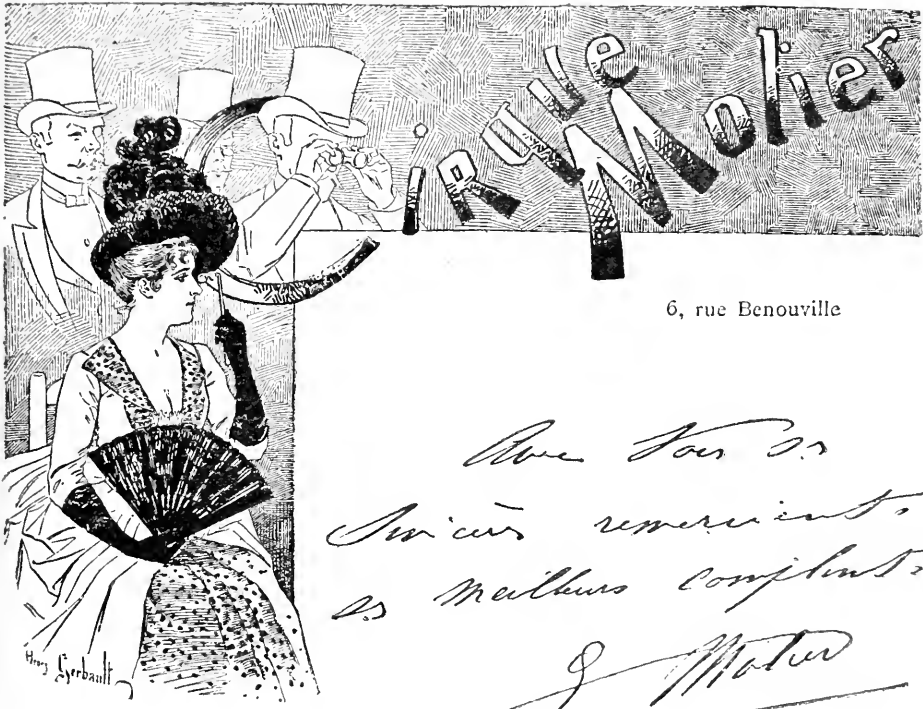 Cirque Molier
6, rue Benouville
Avec tous ses
Sincères remerciements
ses meilleurs compliments
E Molier
Henry Gerbault